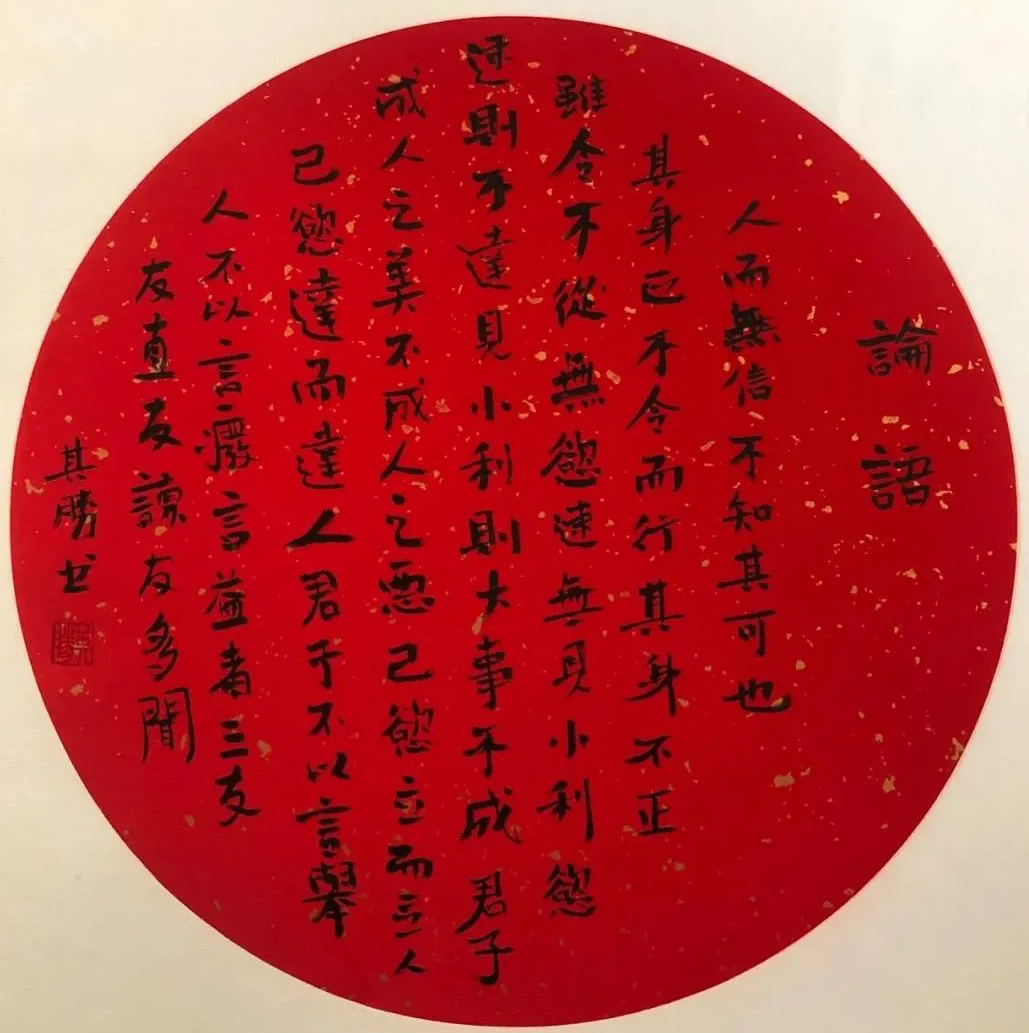 論語
人而無信不知其可也
其身正不令而行其身不正
雖令不從無慾速無見小利慾
速則不達見小利則大事不成君子
成人之美不成人之惡己慾立而立人
己慾達而達人君子不以言舉
人不以言廢言益者三友
友直友諒友多聞
其勝书